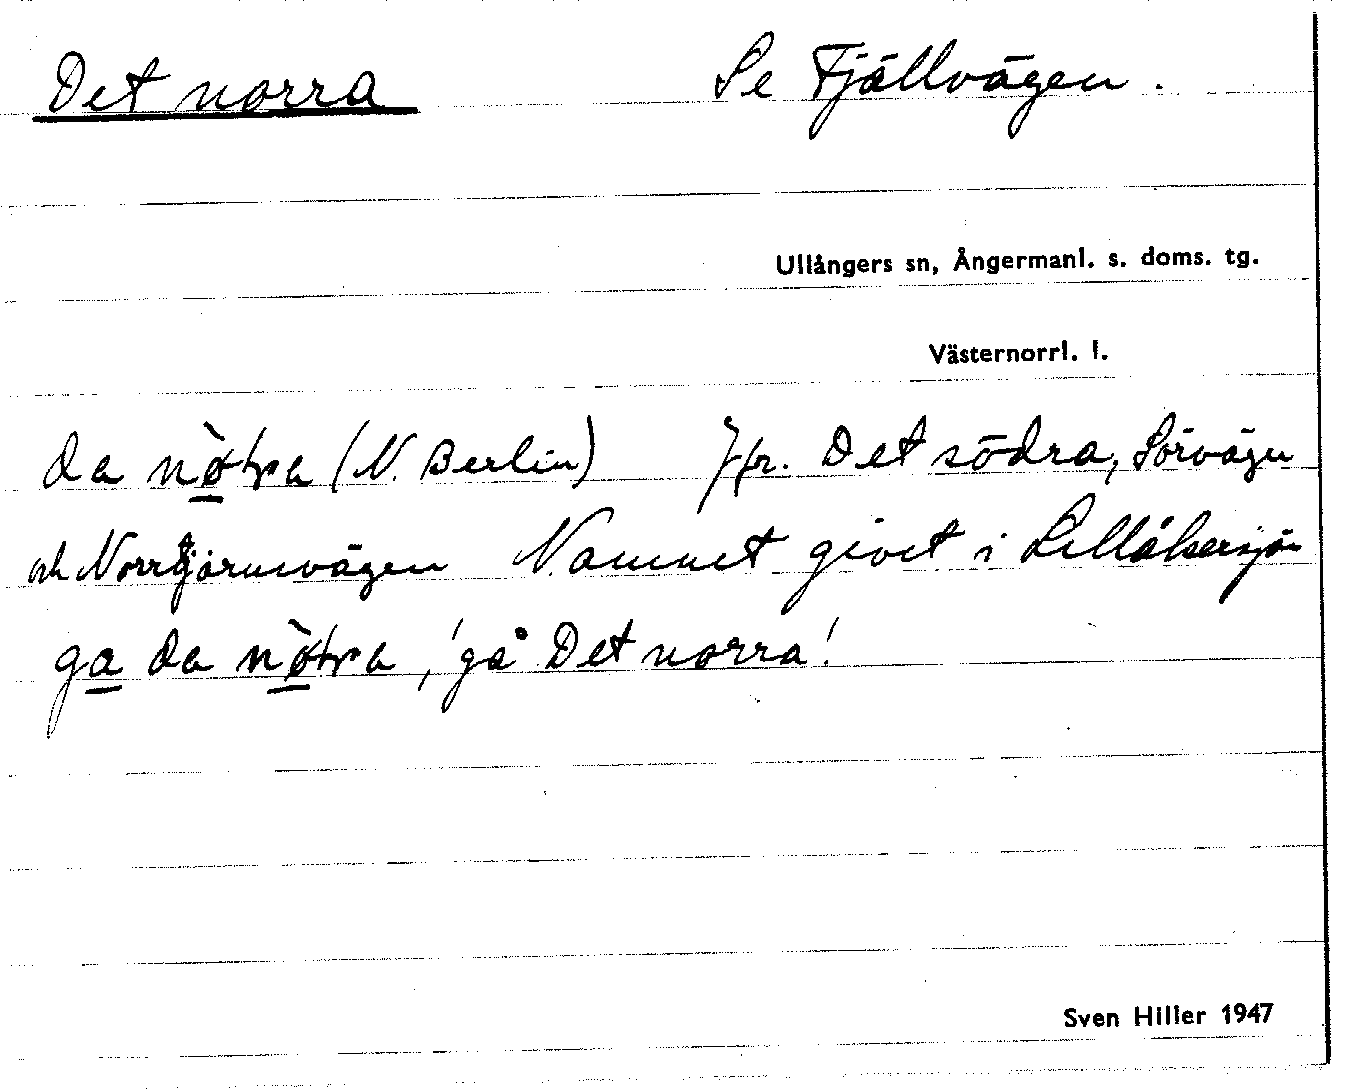 Det norra Se Fjällvägen.
Ullångers sn, Ångermanl. s. doms. tg.
Västernorrl. l.
da (N. Berlin) Jfr. Det södra, Sörvägen
och Norrtjärnsvägen Namnet givet i
ga da , 'gå Det norra'
Sven Hiller 1947